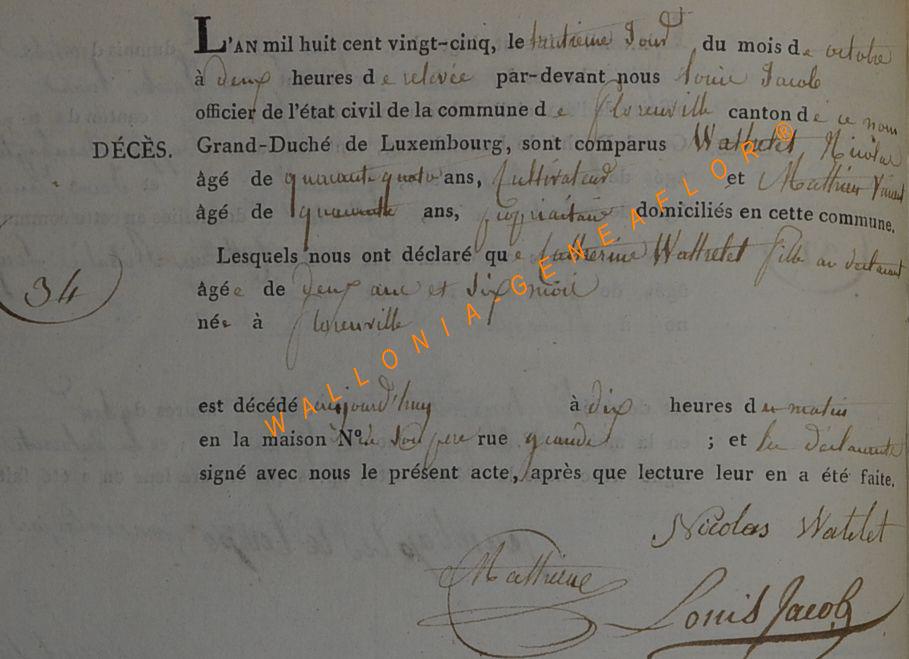 L'AN mil huit cent vingt-cinq, le huitieme Jour du mois de octobre
à deux heures de relevée par-devant nous Louis Jacob
officier de l'état civil de la commune de florenville canton de ce nom
DÉCÈS. Grand-Duché de Luxembourg, sont comparus Wathelet Nicolas
âgé de quarante quatre ans, Cultivateur et Mathieu Vincent
âgé de quarante ans, propriétaire domiciliés en cette commune.
Lesquels nous ont déclaré que Catherine Wathelet fille au declarant
34 âgée de deux ans et six mois
née à florenville
est décédé aujourd'huy à dix heures du matin
en la maison N° de Son pere rue grande ; et les déclarants
signé avec nous le présent acte, après que lecture leur en a été faite.
Nicolas Watelet
Mathieu
Louis Jacob
WALLONIA-GENEAFLOR®